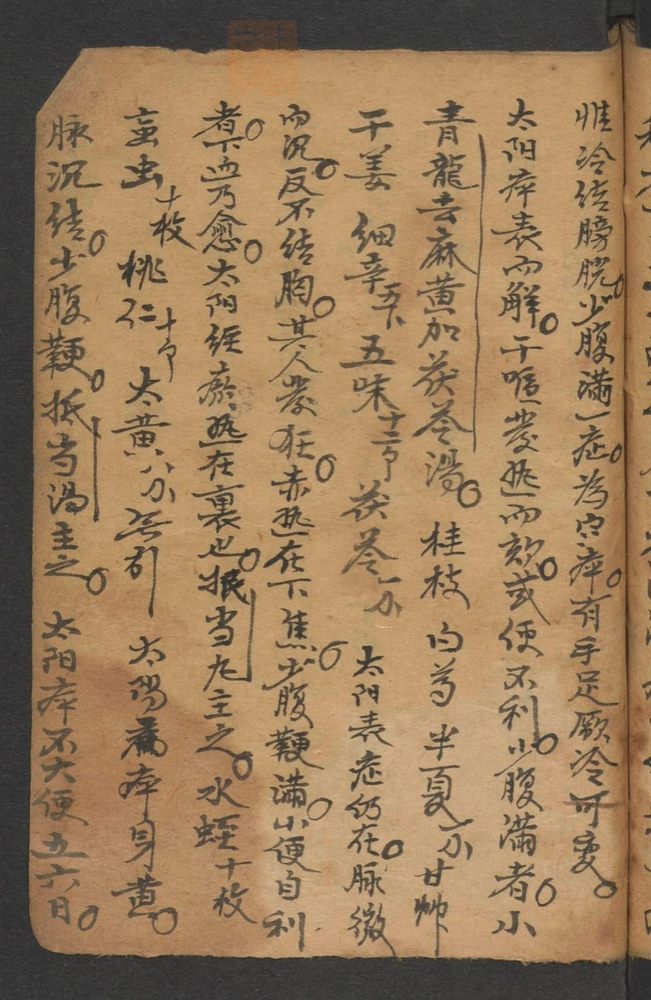 惟冷结膀胱少腹满一症为宜疟有手足厥冷可变
太阳疟表而解干呕發热而欬或便不利少腹满者小
青龍去麻黄加茯苓湯 桂枝 白芍 半夏 甘艸
干姜 细辛 五味 茯苓 太阳表症仍在脉微
而沉反不结胸其人發狂赤热在下焦少腹鞕满小便自利
者下血乃愈太阳经瘀热在裏也抵当丸主之 水蛭十枚
䖟虫十枚 桃仁 大黄 太陽属疟身黄
脉沉结少腹鞕抵当湯主之 太阳疟不大便五六日